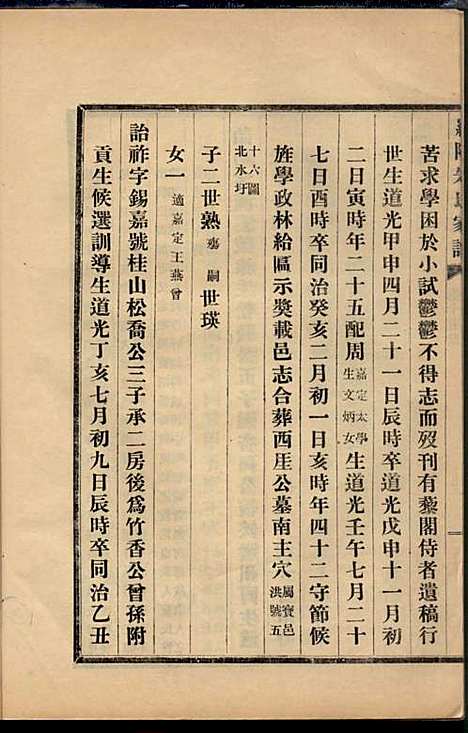 朱氏家譜
苦求學困於小試鬱鬱不得志而歿刊有藜閣侍者遺稿行
世生道光甲申四月二十一日辰時卒道光戊申十一月初
二日寅時年二十五配周嘉定太學生文炳女生道光壬午七月二十
七日酉時卒同治癸亥二月初一日亥時年四十二守節候
旌學政林給匾示獎載邑志合葬西厓公墓南主穴屬寶邑洪號五
十六圖北水圩
子二世熟殤嗣世瑛
女一適嘉定王燕曾
詒祚字錫嘉號桂山松喬公三子承二房後為竹香公曾孫附
貢生候選訓導生道光丁亥七月初九日辰時卒同治乙丑